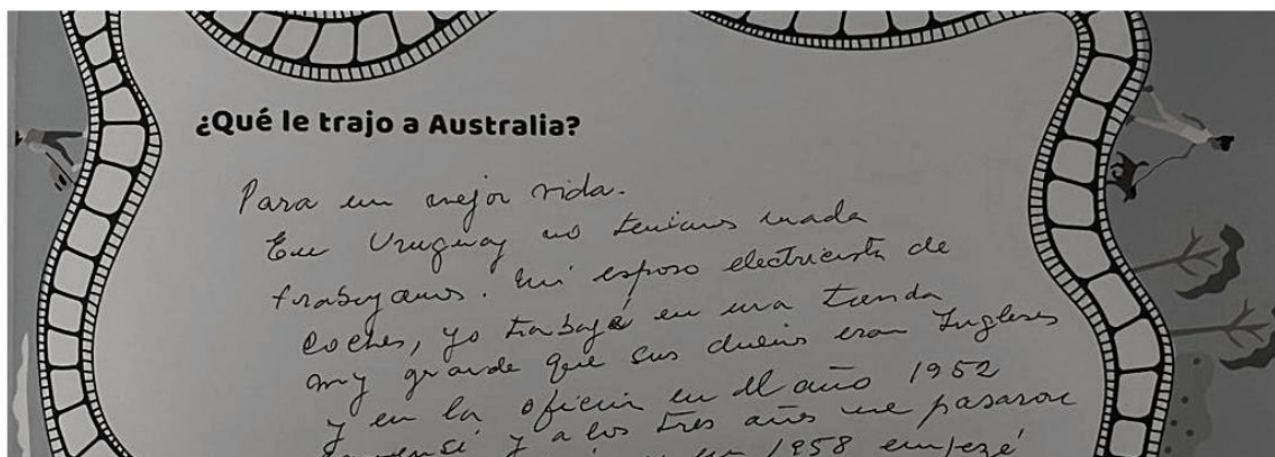 ¿Qué le trajo a Australia?
Para un mejor vida.
En Uruguay no teniamos nada
trabajamos. mi esposo electricista de
coches, yo trabajé en una tienda
my grande que sus dueños eran Ingleses
y en la oficin en el año 1952
y a los tres años me pasaron
1958 empezé